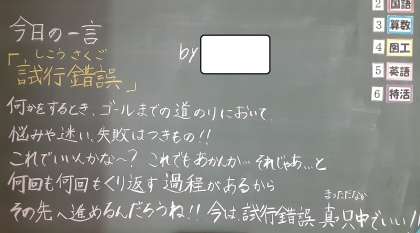 今日の一言
by
しこうさくご
「試行錯誤」
何かをするとき、ゴールまでの道のりにおいて、
悩みや迷い、失敗はつきもの!!
これでいいんかな〜? これでもあかんか… それじゃあ…と
何回も何回もくり返す過程があるから
まっただなか
その先へ進めるんだろうね!! 今は試行錯誤 真っ只中でいい!!
2 国語
3 算数
4 図工
5 英語
6 特活